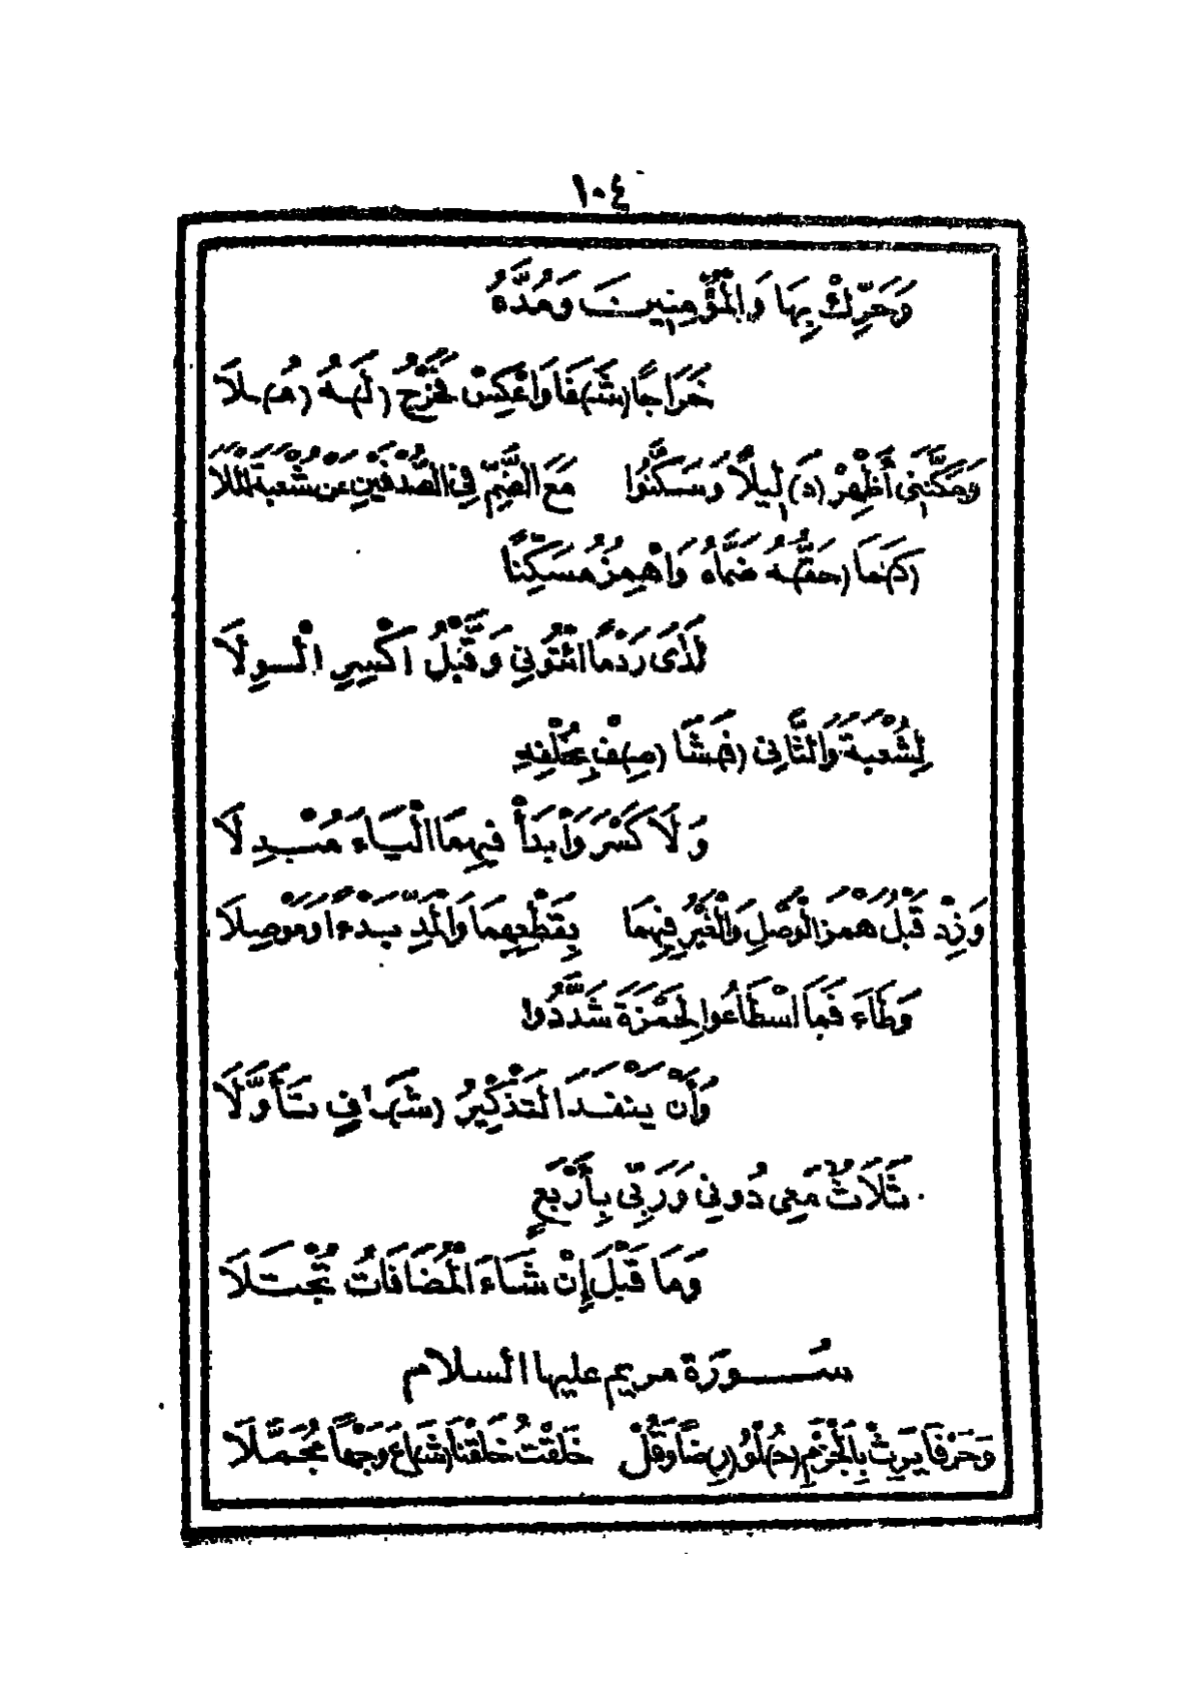 ١٠٤
وَحَرِّكْ بِهَا وَالْمُؤْمِنِينَ وَمُدَّهُ
خَرَاجًا (شَـ)ـفَا وَاعْكِسْ فَخَرْجُ (لَـ)ـهُ (مُـ)ـلَا
وَمَكَّنَنِى أَظْهِرْ (دَ)لِيلًا وَسَكَّنُوا مَعَ الضَّمِّ فِى الصُّدْفَيْنِ عَنْ شُعْبَةَ الْمَلَا
(كَـ)ـمَا (حَقُّـ)ـهُ ضَمَّاهُ وَاهْمِزْ مُسَكِّنًا
لَدَى رَدْمًا ائْتُونِى وَقَبْلُ اكْسِرِ الْوِلَا
لِشُعْبَةَ وَالثَّانِى (فَـ)ـشَا (صِـ)ـفْ بِخُلْفِهِ
وَلَا كَسْرَ وَابْدَأْ فِيهِمَا الْيَاءَ مُبْدِلَا
وَزِدْ قَبْلُ هَمْزَ الْوَصْلِ وَالْغَيْرُ فِيهِمَا بِقَطْعِهِمَا وَالْمَدِّ بَدْءًا وَمَوْصِلَا
وَطَاءَ فَمَا اسْطَاعُوا لِحَمْزَةَ شَدِّدُوا
وَأَنْ يَنْفَدَ التَّذْكِيرُ (شَـ)ـافٍ تَأَوَّلَا
ثَلَاثٌ مَعِى دُونِى وَرَبِّى بِأَرْبَعٍ
وَمَا قَبْلَ إِنْ شَاءَ الْمُضَافَاتُ تُجْتَلَا
سُورَة مريم عليها السلام
وَحَرْفَا يَرِثْ بِالْجَزْمِ (حُـ)ـلْوُ (رِ)ضًا وَقُلْ خَلَقْتُ خَلَقْنَا (شَـ)ـاعَ وَجْهًا مُجَمَّلَا